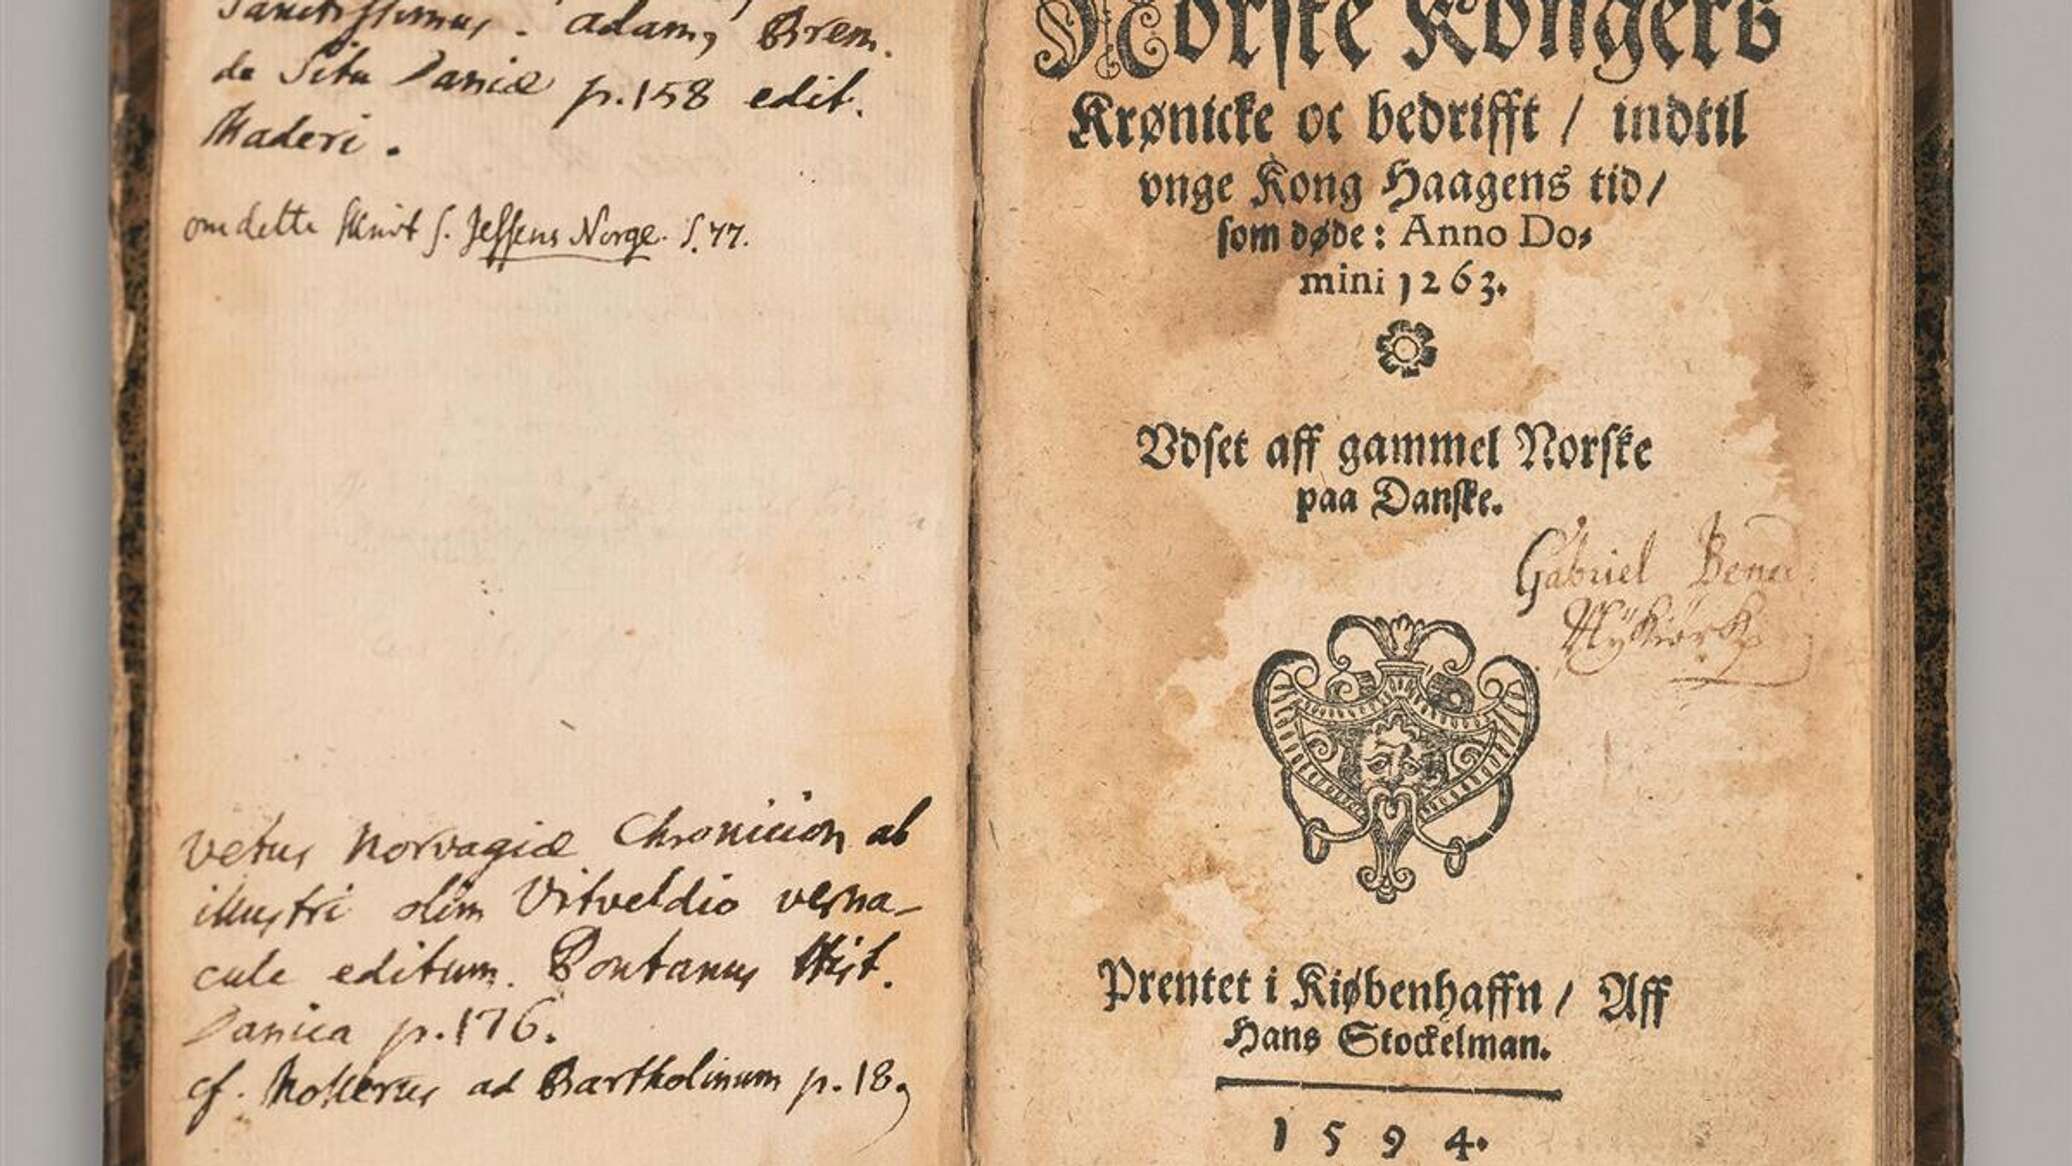 Sanctissimus. Adam, Brem.
de Situ Daniæ p. 158 edit.
Maderi.
om dette Skrivt s. Jessens Norge. S. 77.
Vetus Norvagiæ Chronicion ab
illustri olim Vitveldio verna-
cule editum. Pontanus Hist.
Danica p. 176.
cf. Mollerus ad Bartholinum p. 18
Norske Kongers
Krønicke oc bedrifft / indtil
vnge Kong Haagens tid /
som døde: Anno Do-
mini 1263.
Vdset aff gammel Norske
paa Danske.
Gabriel
Prentet i Kiøbenhaffn / Aff
Hans Stockelman.
1594.